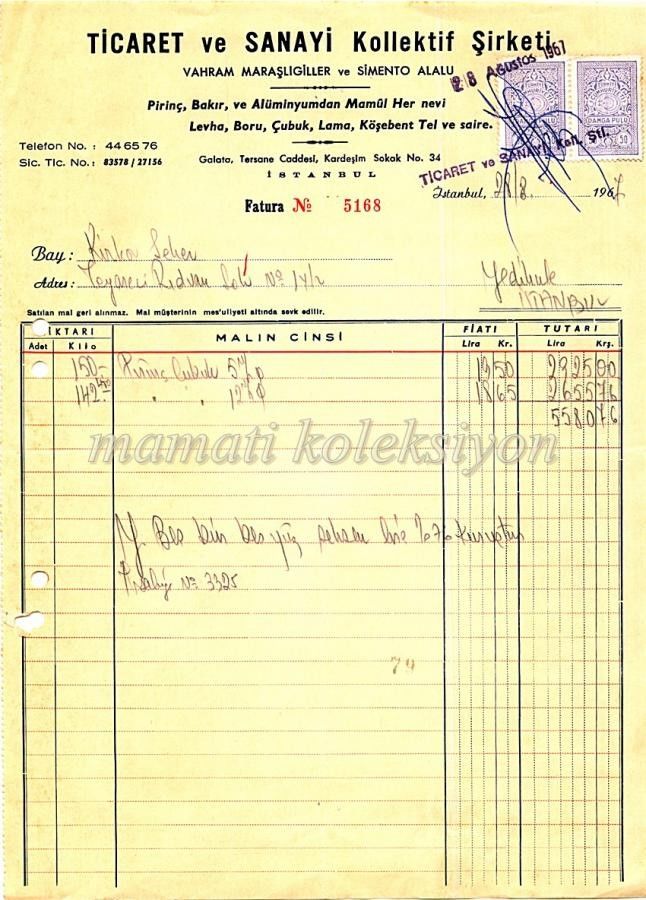 TİCARET ve SANAYİ Kollektif Şirketi
VAHRAM MARAŞLIGİLLER ve SİMENTO ALALU
28 Ağustos 1967
Pirinç, Bakır, ve Alüminyumdan Mamûl Her nevi
Levha, Boru, Çubuk, Lama, Köşebent Tel ve saire.
DAMGA PULU
DAMGA PULU 50
Telefon No. : 44 65 76
Sic. Tic. No.: 83578 / 27156
Galata, Tersane Caddesi, Kardeşim Sokak No. 34
İSTANBUL
TİCARET ve SANAYİ Koll. Şti.
İstanbul, 28/8 1967
Fatura № 5168
Bay: Kirkor
Adres: Rıdvan No 14/2 Yedikule
İSTANBUL
Satılan mal geri alınmaz. Mal müşterinin mes'uliyeti altında sevk edilir.
MİKTARI MALIN CİNSİ FİATI TUTARI
Adet Kilo Lira Kr. Lira Krş.
150 Pirinç Çubuk 5 1950 292500
142.40 " " 12 1865 265576
558076
mamati koleksiyon
Y. Beş bin beş yüz seksen lira % 76 Kuruştur
No 3325
74